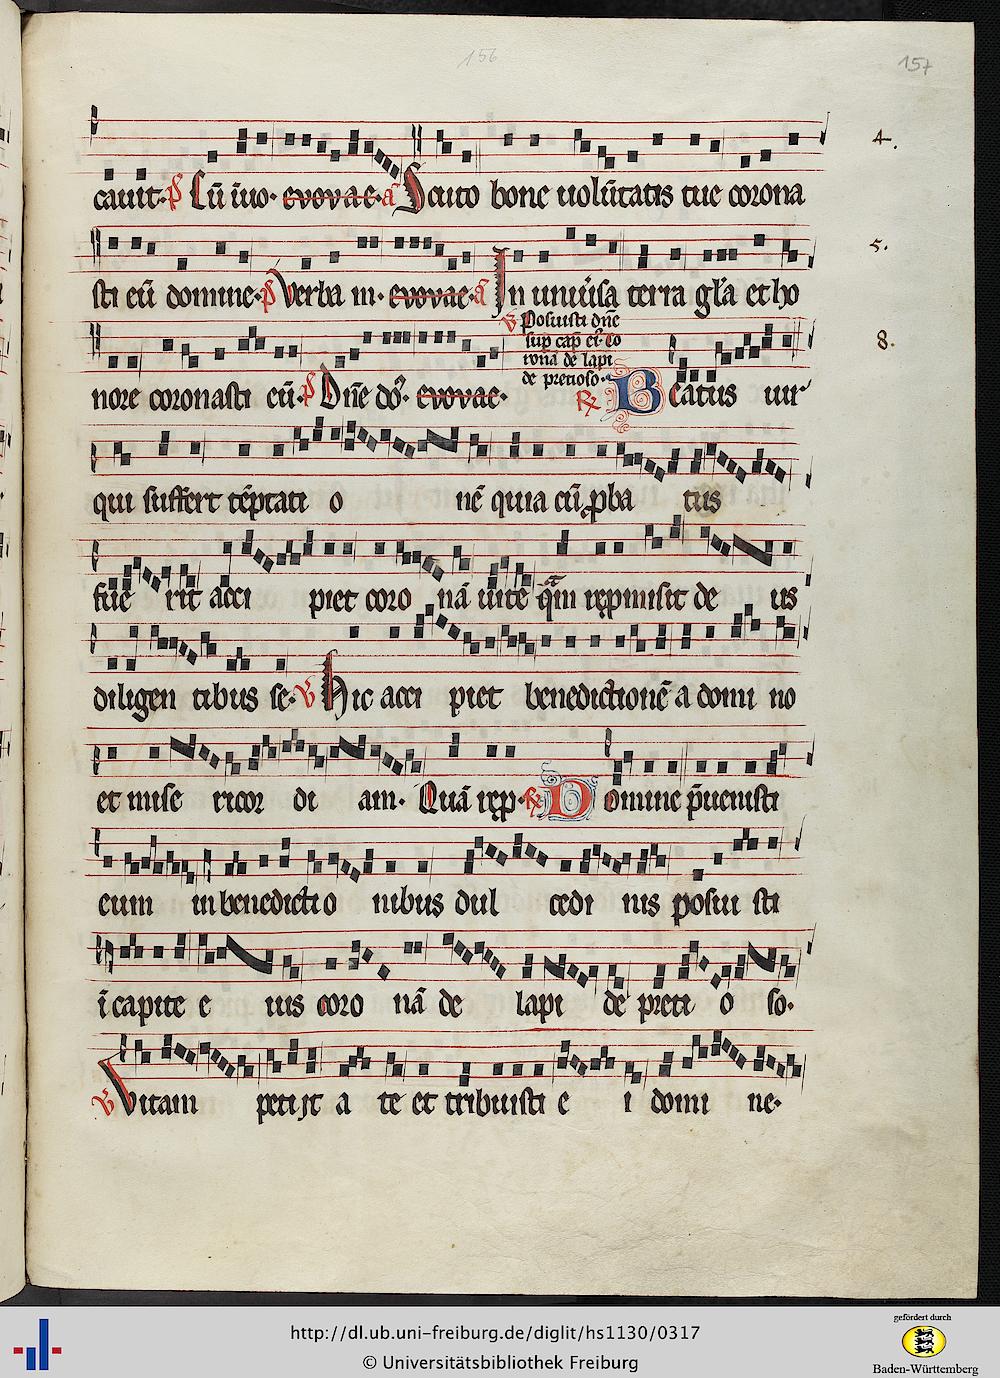 156
157
cauit· p̄s Cū īuo· euouae· a̅ Scuto bone uolūtatis tue corona
4.
sti eū domine· p̄s Verba m· euouae· a̅ In uniuˀsa terra gl̄a et ho
5.
nore coronasti eū· p̄s Dn̄e do̅· euouae·
V̷ Posuisti dn̄e
sup cap̄ eiˀ co
ronā de lapi
de precioso·
R̷ Beatus uir
8.
qui suffert tēptati o nē quia cū ꝓba tus
fue rit acci piet coro nā uite quā rep̄misit de us
diligen tibus se· V̷ Hic acci piet benedictionē a domi no
et mise ricor di am· Quā rep̄· R̷ Domine p̄uenisti
eum in benedicti o nibus dul cedi nis posui sti
ī capite e ius coro nā de lapi de preti o so·
V̷ Vitam petijt a te et tribuisti e i domi ne·
http://dl.ub.uni-freiburg.de/diglit/hs1130/0317
© Universitätsbibliothek Freiburg
gefördert durch
Baden-Württemberg